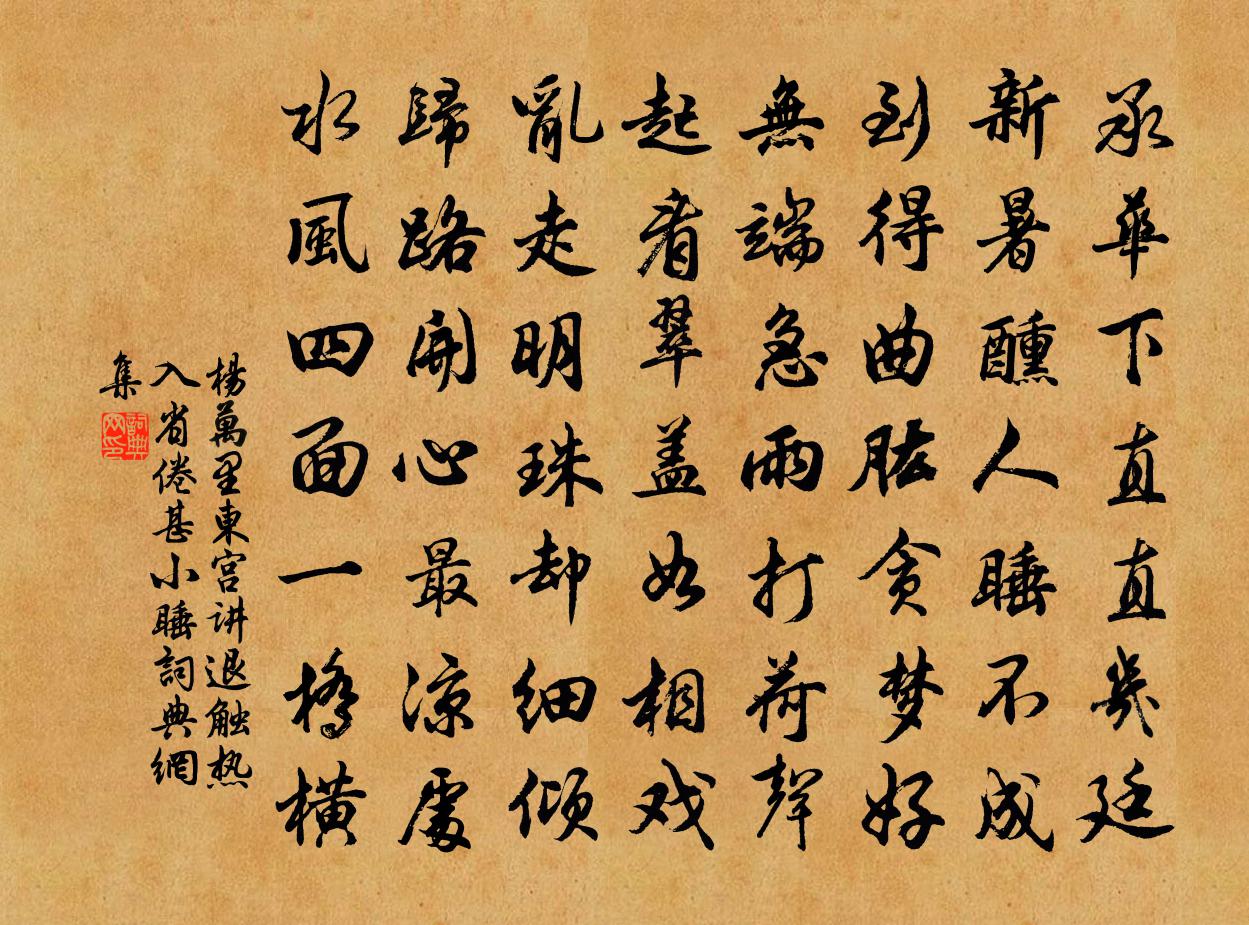 承華下直直幾廷
新暑醺人睡不成
到得曲肱贪梦好
無端急雨打荷聲
起看翠盖如相戏
亂走明珠却细倾
歸路開心最涼處
水風四面一橋橫
楊萬里東宮讲退触热
入省倦甚小睡詞典網
集
詞典网印